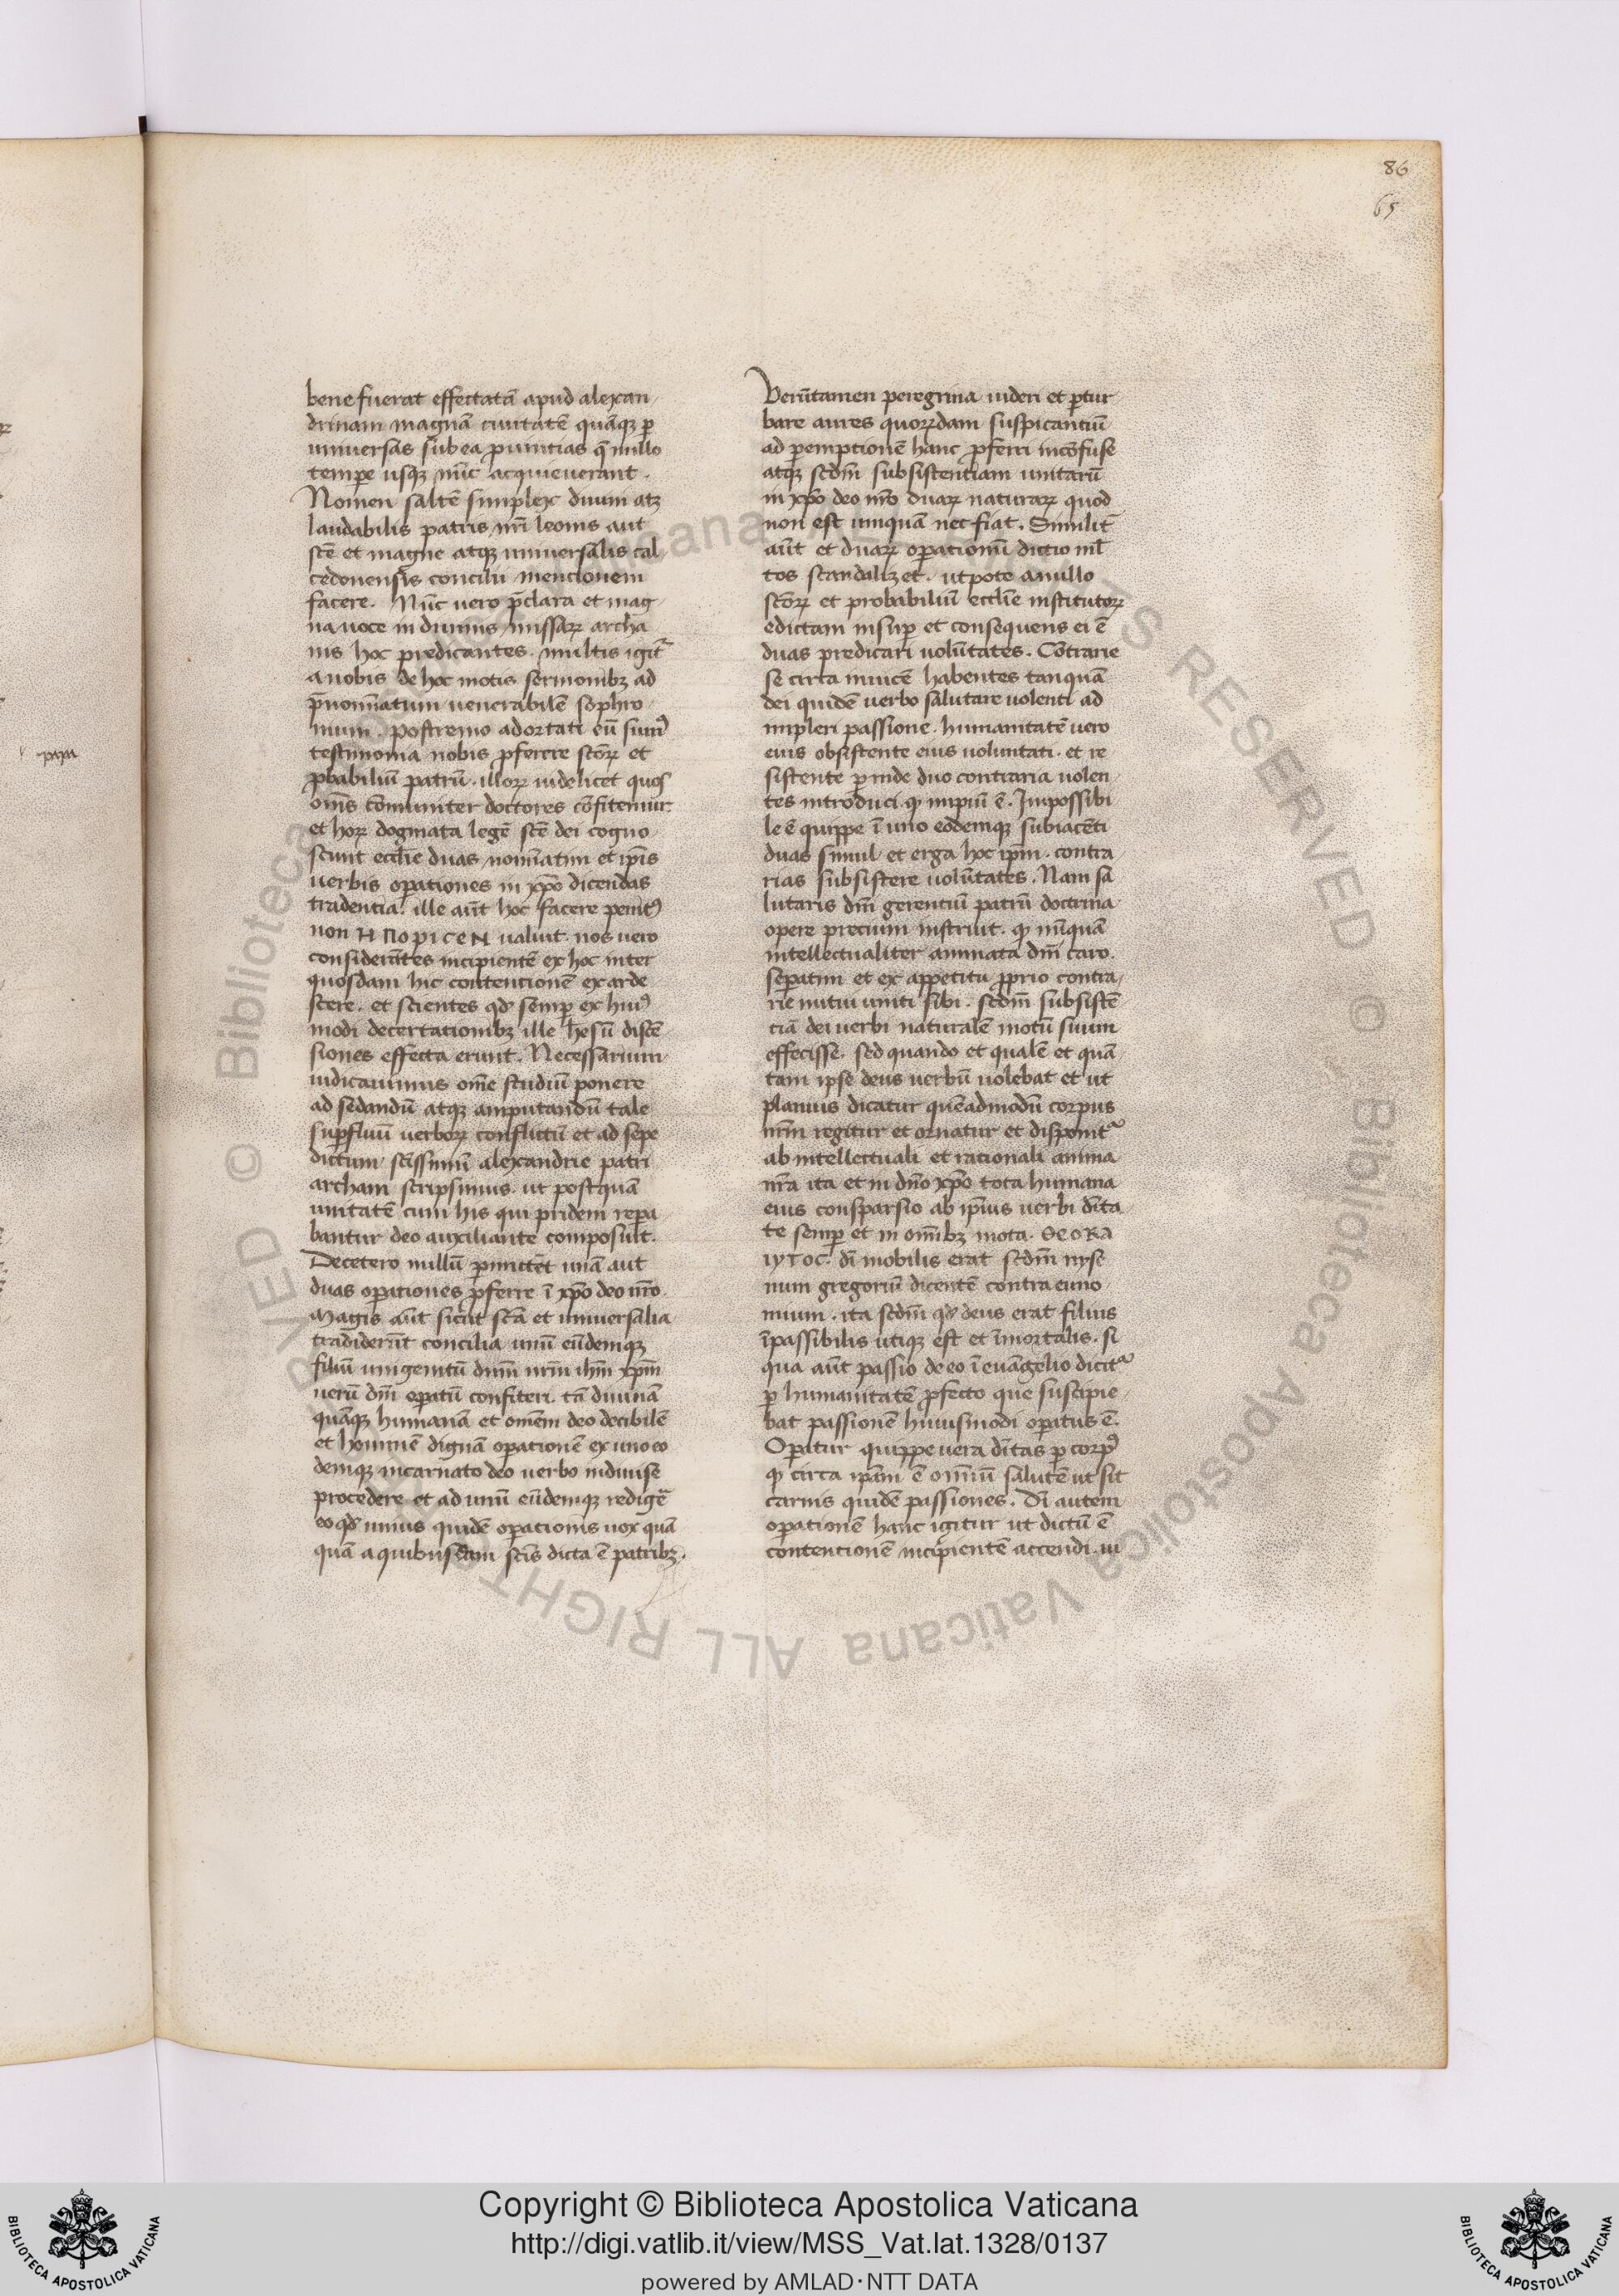 86
65
bene fuerat effectatā apud alexan
drinam magnā ciuitatē quāqꝫ ꝑ
uniuersas sub ea ꝓuintias q̄ nullo
tempe usqꝫ nūc acquieuerant.
Nomen saltē simplex diuum atqꝫ
laudabilis patris nr̄i leonis aut
scē et magne atqꝫ uniuersalis cal
cedonensis concilii mencionem
facere. Nūc uero p̄clara et mag
na uoce in diuinis missaꝝ archa
nis hoc predicantes. multis igit᷑
a nobis de hoc motis sermonibꝫ ad
p̄nomīatum uenerabilē sophro
nium. Postremo adortati eū sumꝰ
testimonia nobis ꝓferere scōꝝ et
ꝓbabiliū patrū. illoꝝ uidelicet quos
om̄s cōmuniter doctores cōfitemur
et hoꝝ dogmata legē scē dei cogno
scunt eccl̄ie duas nomīatim et ip̄is
uerbis oꝑationes in xp̄o dicendas
tradentia. ille aūt hoc facere penitꝰ
non ΗΠΟΡΙCΕΝ ualuit. nos uero
considerātes incipientē ex hoc inter
quosdam hic contentionē ex arde
scere. et scientes qd̄ semꝑ ex huiꝰ
modi decertationibꝫ ille hesū discē
siones effecta erunt. Necessarium
iudicauimus om̄e studiū ponere
ad sedandū atqꝫ amputandū tale
suꝑfluū uerboꝝ conflictū et ad sepe
dictum scīssimū alexandrie patri
archam scripsimus. ut postquā
unitatē cum his qui pridem repa
bantur deo auxiliante composuit.
Decetero nullū ꝑmittēt unā aut
duas oꝑationes ꝓferre ī xp̄o deo nr̄o
Magis aūt sicut scā et uniuersalia
tradiderūt concilia unū eūdemqꝫ
filiū unigenitū dn̄m nrm̄ ihm̄ xpm̄
uerū dm̄ oꝑatū confiteri. tā diuinā
quāqꝫ humanā et om̄em deo decibilē
et hominē dignā oꝑationē ex uno eo
demqꝫ incarnato deo uerbo indiuise
procedere et ad unū eūdemqꝫ redigē
eo qd̄ unius quidē oꝑationis uox quā
quā a quibusdam scīs dicta ē patribꝫ.
Verūtamen peregrina uideri et ꝑtur
bare aures quoꝝdam suspicantiū
ad ꝑemptionē hanc ꝓferri incōfuse
atqꝫ scdm̄ subsistentiam unitarū
in xp̄o deo nr̄o duaꝝ naturaꝝ quod
non est umquā nec fiat. Similit᷑
aūt et duaꝝ oꝑationū dictio ml̄
tos scandalizet. utpote a nullo
scōꝝ et probabiliū eccl̄ie institutoꝝ
edictam insuꝑ et consequens ei ē
duas predicari uolūtates. Cōtrarie
se circa inuicē habentes tanquā
dei quidē uerbo salutare uolenti ad
impleri passione. humanitatē uero
eius obsistente eius uoluntati. et re
sistente ꝑ inde duo contraria uolen
tes introduci. qꝫ impiū ē. Impossibi
le ē quippe ī uno eodemqꝫ subiacēti
duas simul et erga hoc ip̄m. contra
rias subsistere uolūtates. Nam sa
lutaris dm̄ gerentiū patrū doctrina
opere precium instruit. qꝫ nūquā
intellectualiter animata dm̄ caro.
seꝑatim et ex appetitu ꝓprio contra
rie nutui uniti sibi. scdm̄ subsistē
tiā dei uerbi naturalē motū suum
effecisse. sed quando et qualē et quā
tam ipse deus uerbū uolebat et ut
planius dicatur quēadmodū corpus
nrm̄ regitur et ornatur et disponit᷑
ab intellectuali et racionali anima
nr̄a ita et in dn̄o xp̄o tota humana
eius consparsio ab ip̄ius uerbi dīta
te semꝑ et in om̄ibꝫ mota. ΘΕΟΚΑ
ΙΥΤΟC. dī mobilis erat scdm̄ nyse
num gregoriū dicentē contra euno
mium. ita scdm̄ qd̄ deus erat filius
īpassibilis utiqꝫ est et īmortalis. si
qua aūt passio de eo ī euāgelio dicit᷑
ꝑ humanitatē ꝓfecto que suscipie
bat passionē huiusmodi oꝑatus ē.
Oꝑatur quippe uera dītas ꝑ corpꝰ
qꝫ circa ip̄am ē om̄iū salutē ut sit
carnis quidē passiones. Dī autem
oꝑationē hanc igitur ut dictū ē
contentionē incipientē accendi. ui
papa
Copyright © Biblioteca Apostolica Vaticana
http://digi.vatlib.it/view/MSS_Vat.lat.1328/0137
powered by AMLAD·NTT DATA